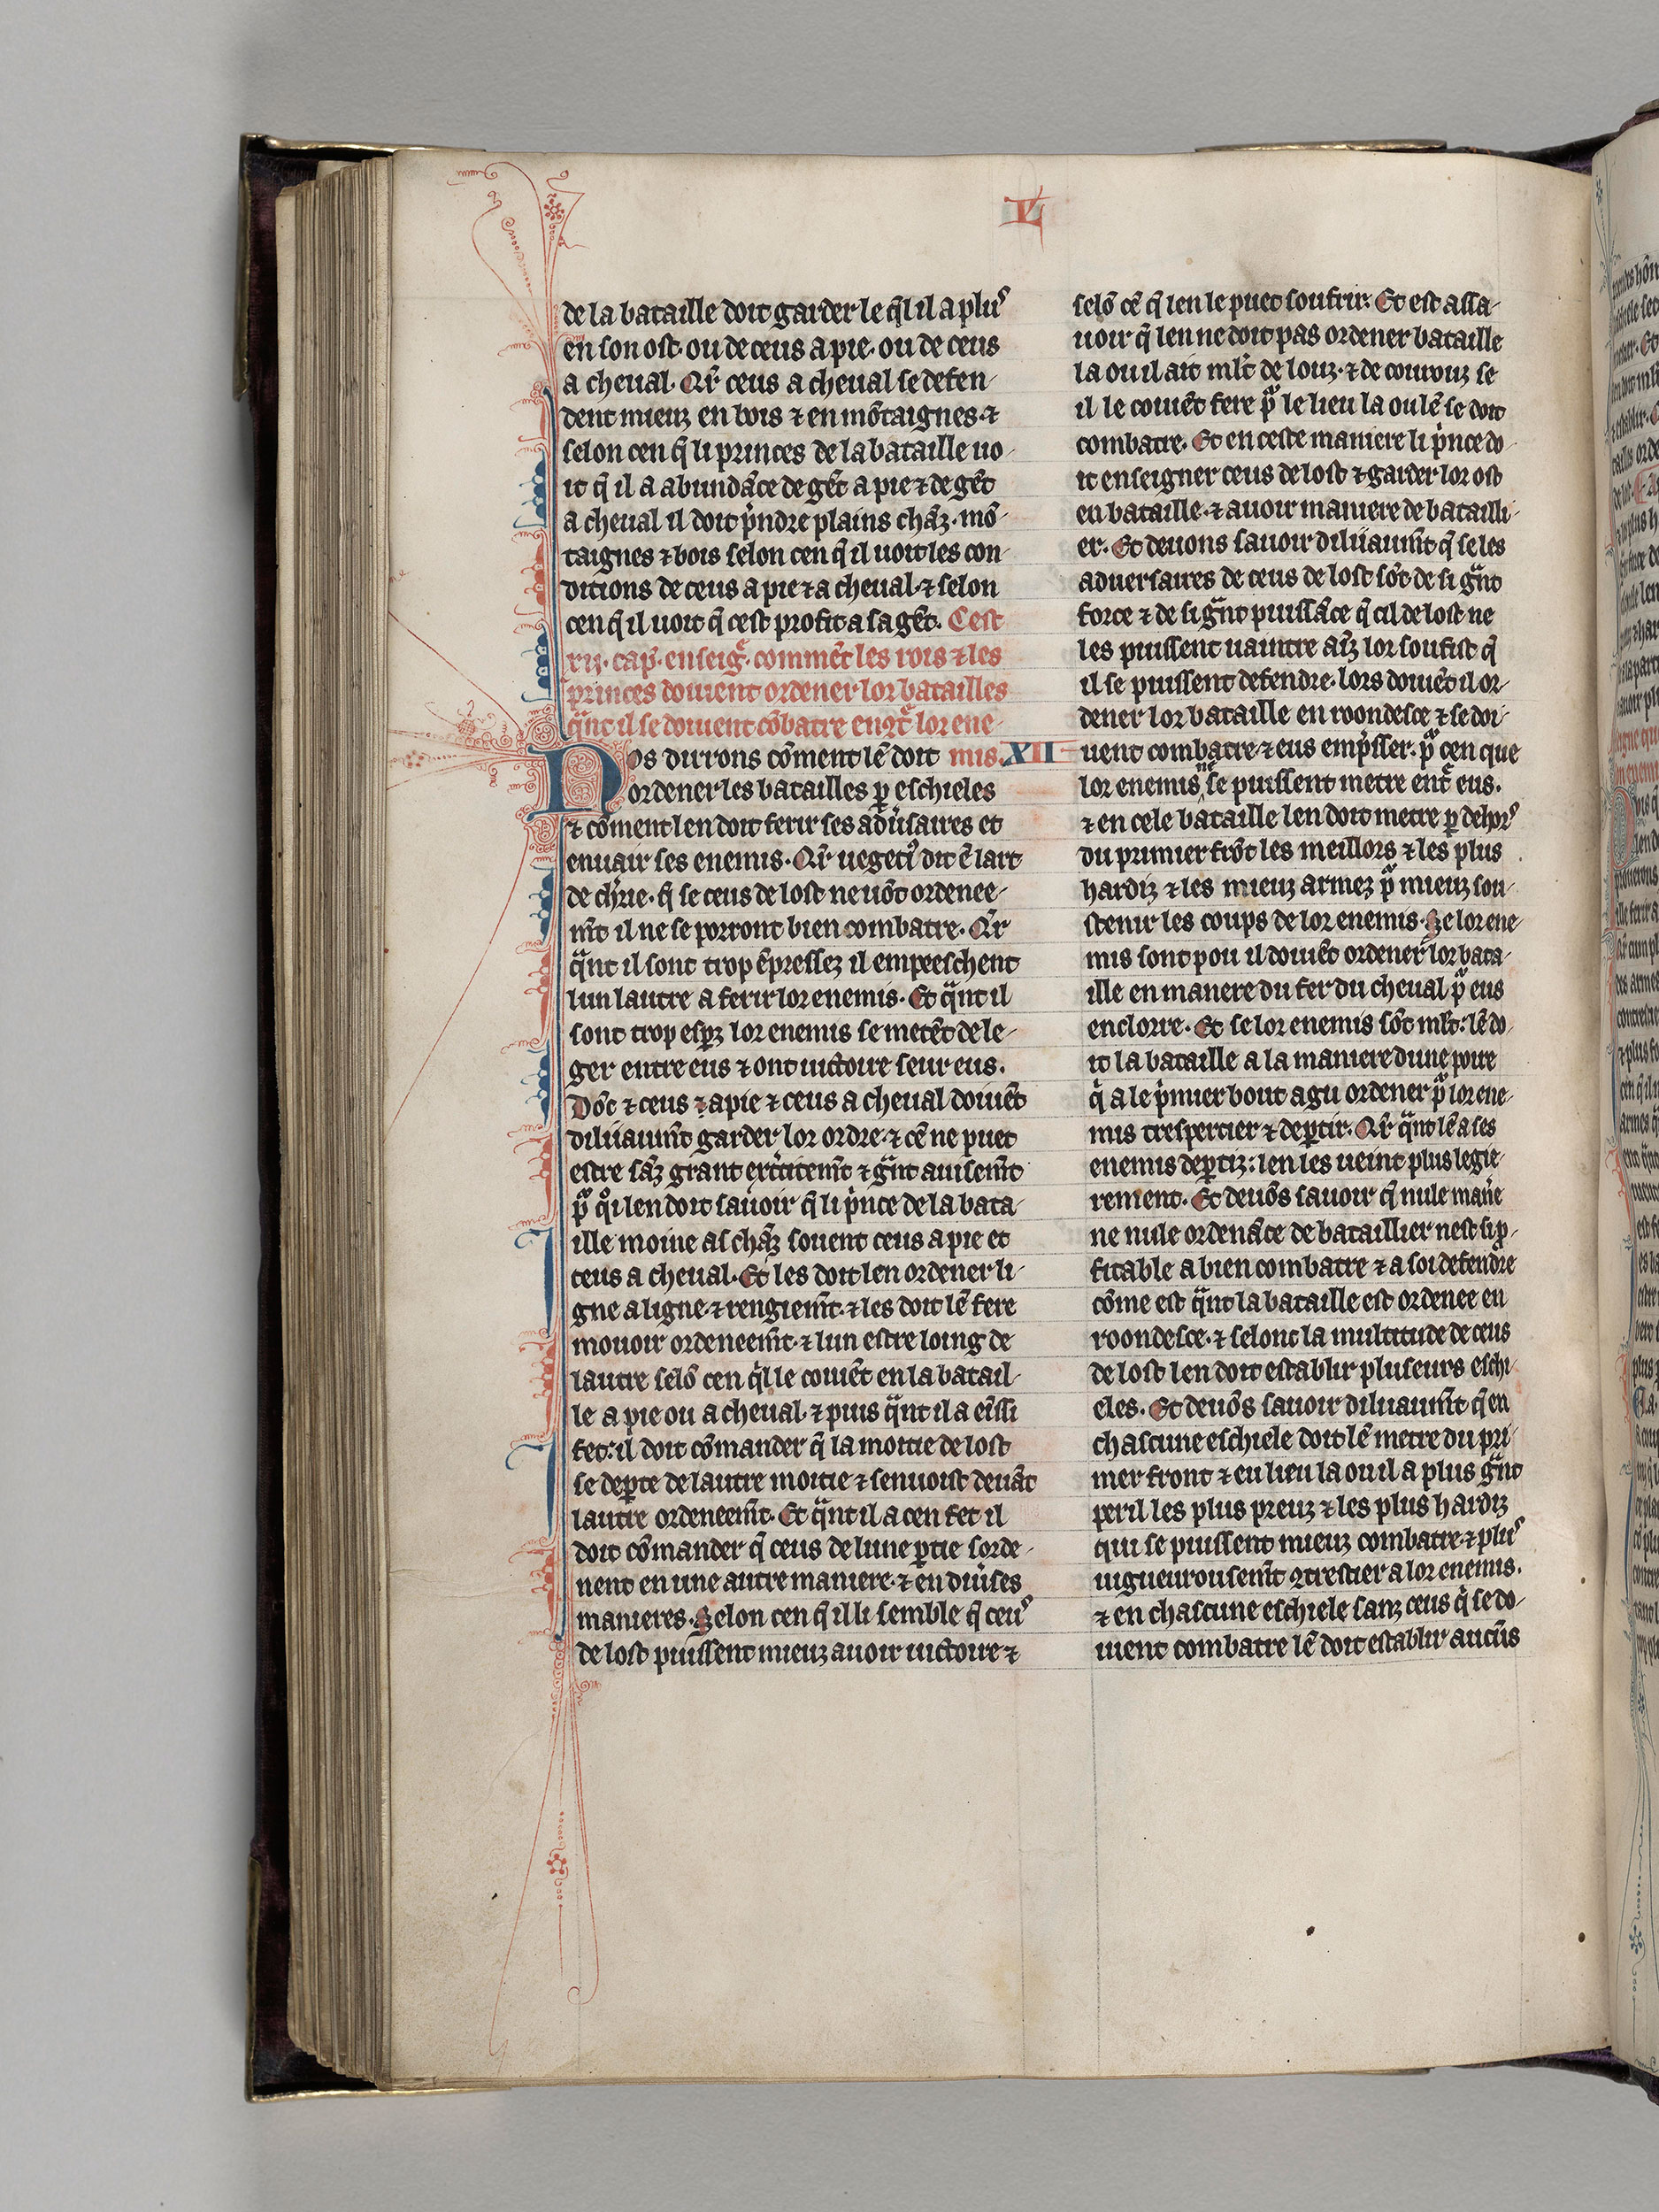 L
de la bataille doit garder le q̄l il a plꝰ
en son ost. ou de ceus a pie. ou de ceus
a cheual. Qr̄ ceus a cheual se defen-
dent mieuz en bois ⁊ en mōtaignes. ⁊
selon cen q̄ li princes de la bataille uo-
it q̄ il a abundāce de gēt a pie ⁊ de gēt
a cheual il doit p̓ndre plains chāz. mō-
taignes ⁊ bois selon cen q̄ il uoit les con-
ditions de ceus a pie ⁊ a cheual. ⁊ selon
cen q̄ il uoit q̄ cest profit a sa gēt. Cest
xii. cap̄. enseig̃. commēt les rois ⁊ les
princes doiuent ordener lor batailles
qᷓnt il se doiuent cōbatre encōt̃ lor ene-
Nos dirrons cōment lē doit mis. XII
ordener les batailles ꝑ eschieles
⁊ cōment len doit ferir ses adu̓saires et
enuair ses enemis. Qr̄ uegetꝰ dit ē lart
de ch̓rie. q̄ se ceus de lost ne uōt ordenee-
mt̄ il ne se porront bien combatre. Qr̄
qᷓnt il sont trop ēpressez il empeeschent
lun lautre a ferir lor enemis. Et qᷓnt il
sont trop esꝑz lor enemis se metēt de le-
ger entre eus ⁊ ont uictoire seur eus.
Dōc ⁊ ceus ⁊ a pie ⁊ ceus a cheual doiuēt
diliiaumt̄ garder lor ordre. ⁊ cē ne puet
estre sāz grant exc̓itemt̄ ⁊ gᷓnt auisemt̄
pᷓ qͦi len doit sauoir q̄ li p̓nce de la bata-
ille moine as chāz souent ceus a pie et
ceus a cheual. Et les doit len ordener li-
gne a ligne. ⁊ rengiemt̄. ⁊ les doit lē fere
mouoir ordeneemt̄. ⁊ lun estre loing de
lautre selō cen q̄l le couiēt en la batail-
le a pie ou a cheual. ⁊ puis qᷓnt il a eīssi
fet: il doit cōmander q̄ la moitie de lost
se deꝑte de lautre moitie ⁊ senuoist deuāt
lautre ordeneemt̄. Et qᷓnt il a cen fet il
doit cōmander q̄ ceus de lune ꝑtie sorde-
nent en une autre maniere. ⁊ en diu̓ses
manieres. Selon cen q̄ il li semble q̄ ceuꝰ
de lost puissent mieuz auoir uictoire ⁊
selō cē q̄ len le puet soufrir. Et est assa-
uoir q̄ len ne doit pas ordener bataille
la ou il ait ml̄t de louz. ⁊ de couuouz se
il le couiēt fere pᷓ le lieu la ou lē se doit
combatre. Et en ceste maniere li p̓nce do-
it enseigner ceus de lost ⁊ garder lor ost
en bataille. ⁊ auoir maniere de batailli-
er. Et deuons sauoir diliiaumt̄ q̄ se les
aduersaires de ceus de lost sōt de si gᷓnt
force ⁊ de si gᷓnt puissāce q̄ cil de lost ne
les puissent uaintre aīz lor soufist q̄
il se puissent defendre. lors doiuēt il or-
dener lor bataille en roondesce ⁊ se doi-
uent combatre. ⁊ eus emp̓sser. pᷓ cen que
lor enemis ne se puissent metre ent̃ eus.
⁊ en cele bataille len doit metre ꝑ dehorꝰ
du primier frōt les meillors ⁊ les plus
hardiz ⁊ les mieuz armez pᷓ mieuz sou-
stenir les coups de lor enemis. Se lor ene-
mis sont pou il doiuēt ordener lor bata-
ille en manere du fer du cheual pᷓ eus
enclorre. Et se lor enemis sōt ml̄t: lē do-
it la bataille a la maniere dune poire
q̓ a le p̓mier bout agu ordener pᷓ lor ene-
mis trespercier ⁊ deꝑtir. Qr̄ qᷓnt lē a ses
enemis deꝑtiz: len les ueint plus legie-
rement. Et deuōs sauoir q̄ nule man̓e
ne nule ordenāce de bataillier nest si ꝓ-
fitable a bien combatre ⁊ a soi defendre
cōme est qᷓnt la bataille est ordenee en
roondesce. ⁊ selonc la multitude de ceus
de lost len doit establir pluseurs eschi-
eles. Et deuōs sauoir diliiaumt̄ q̄ en
chascune eschiele doit lē metre du pri-
mer front ⁊ eu lieu la ou il a plus gᷓnt
peril les plus preuz ⁊ les plus hardiz
qui se puissent mieuz combatre. ⁊ plꝰ
uigueurousemt̄ ꝯtrestier a lor enemis.
⁊ en chascune eschiele sanz ceus q̓ se do-
iuent combatre lē doit establir aucūs